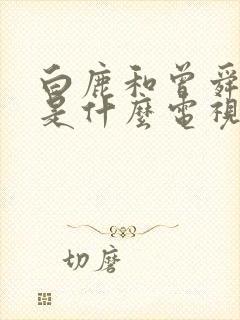 白鹿和曾舜
是什麼電視
切磨